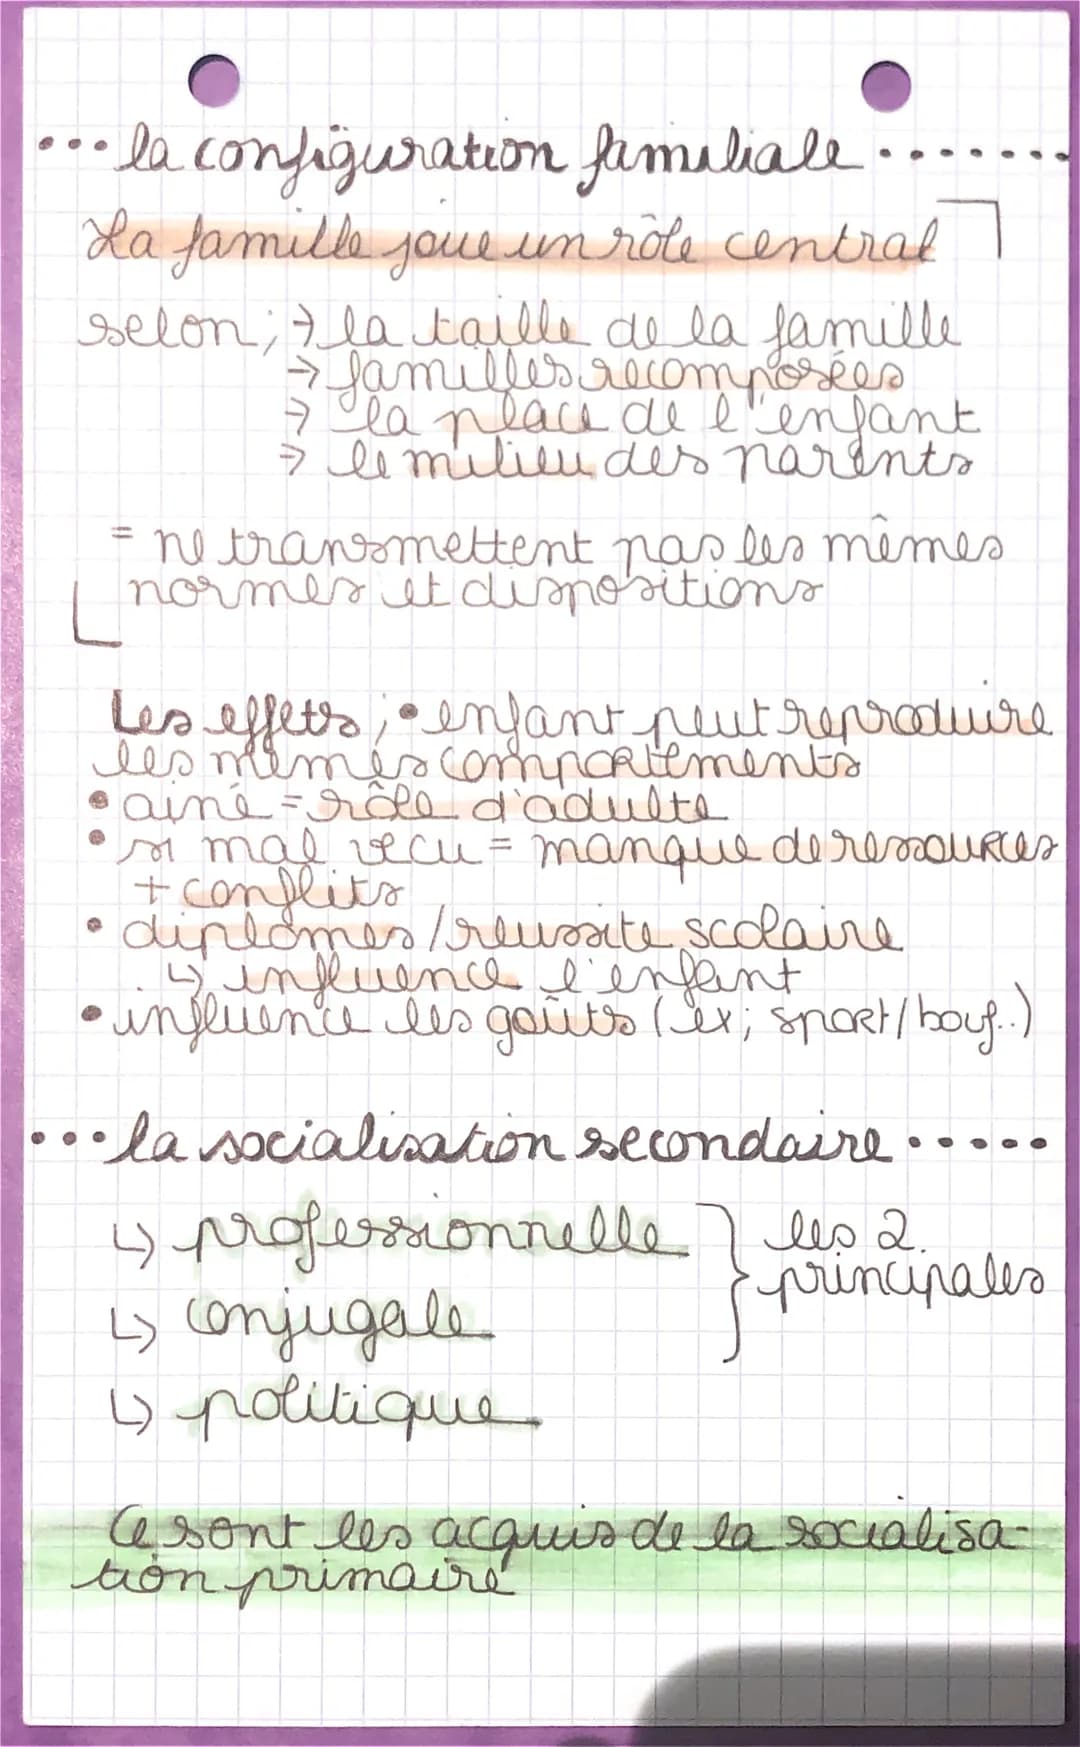 ... la configuration familiale .......
La famille joue un rôle central
selon; → la taille de la famille
→ familles recomposées
→ la place de l'enfant
→ le milieu des parents
= ne transmettent pas les mêmes
normes et dispositions
Les effets; • enfant peut reproduire
les mêmes comportements
• ainé = rôle d'adulte
• si mal vecu = manque de ressources
+ conflits
• diplômes / reussite scolaire
↳ influence l'enfant
• influence les goûts (ex; sport/bouf..)
... la socialisation secondaire .....
↳ professionnelle } les 2
principales
↳ conjugale
↳ politique
Ce sont les acquis de la socialisa-
tion primaire